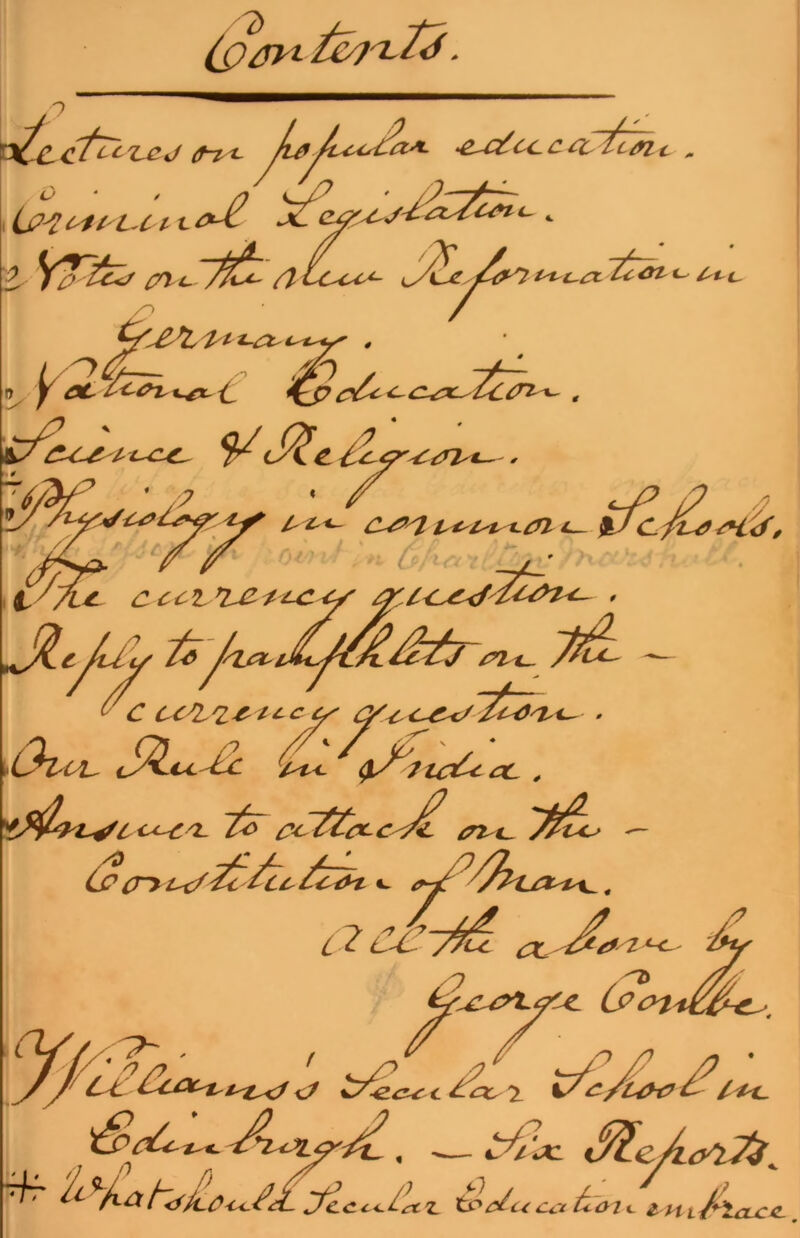 Contents.
Lectures on popular education.
Criminal Legislation.
Notes on the new Reformation in
Germany.
National Education.
Science & Religion.
Physiology in common Schools.
The currency question.
Reply to pamphlets on the –
currency question.
Our Rule in India.
Answer to attack on the –
Constitution of Man.
All the above by
George Combe.
Williams's Secular School in
Edinburgh. — Six Reports.
+ What should Secular Education embrace.